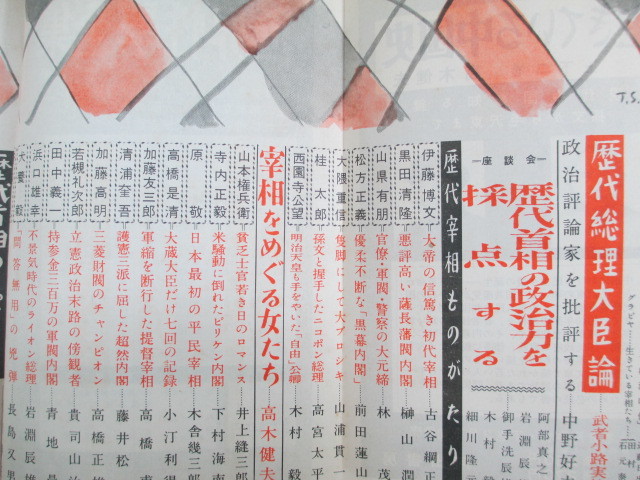 T.S.
歴代総理大臣論
武者小路実
政治評論家を批評する
中野好
グラビヤ・生きている宰相たち
田村
石元泰
―座談会―
歴代首相の政治力を
採点する
阿部真之
岩淵辰
御手洗辰
木村毅
細川隆
歴代宰相ものがたり
伊藤博文 大帝の信篤き初代宰相 古谷綱正
黒田清隆 悪評高い薩長藩閥内閣 榊山潤
山県有朋 官僚・軍閥・警察の大元締 林茂
松方正義 優柔不断な「黒幕内閣」 前田蓮山
大隈重信 隻脚にして大ブロシキ 山浦貫一
桂太郎 孫文と握手したニコポン総理 高宮太平
西園寺公望 明治天皇も手をやいた「自由」公卿 木村毅
宰相をめぐる女たち 高木健夫
山本権兵衛 貧乏士官若き日のロマンス 井上縫三郎
寺内正毅 米騒動に倒れたビリケン内閣 下村海南
原敬 日本最初の平民宰相 木舎幾三郎
高橋是清 大蔵大臣だけ七回の記録 小汀利得
加藤友三郎 軍縮を断行した提督宰相 高橋
清浦奎吾 護憲三派に屈した超然内閣 藤井松
加藤高明 三菱財閥のチャンピオン 高橋正雄
若槻礼次郎 立憲政治末路の傍観者 貴司山治
田中義一 持参金三百万の軍閥内閣 青地晨
浜口雄幸 不景気時代のライオン総理 岩淵辰雄
犬養毅 「問答無用」の兇弾 長島又男
歴代首相の